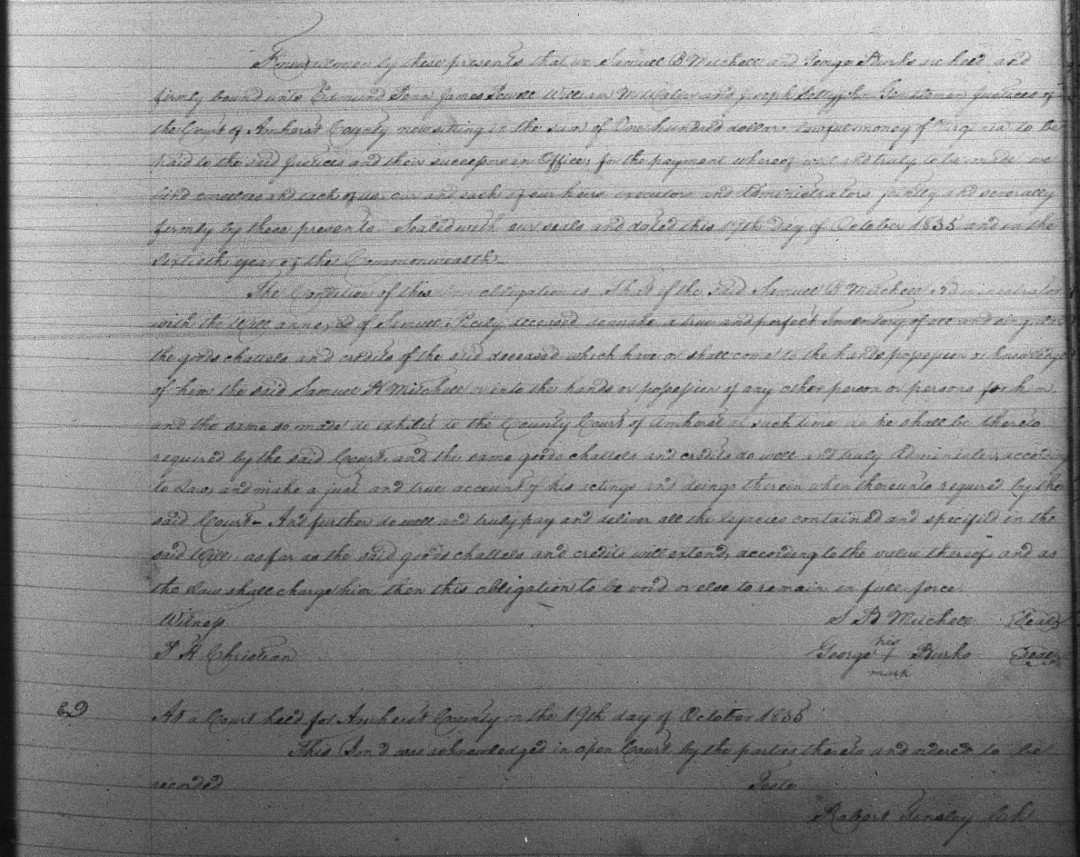 Know all men by these presents that we Samuel B Mitchell and George Burks are held and
firmly bound unto Edmund Penn James Powell William M Waller and Joseph Gentlemen Justices of
the Court of Amherst County now sitting in the sum of One hundred dollars lawful money of Virginia to be
paid to the said Justices and their successors in Office, for the payment whereof well and truly to be made we
bind ourselves and each of us, our and each of our heirs executors and Administrators jointly and severally
firmly by these presents. Sealed with our seals and dated this 19th day of October 1835 and in the
Sixtieth year of the Commonwealth.
The Condition of this obligation is That if the said Samuel B Mitchell Administrator
with the Will annexed of Samuel deceased do make a true and perfect Inventory of all and singular
the goods chattels and credits of the said deceased which have or shall come to the hands possession or knowledge
of him the said Samuel B Mitchell or into the hands or possession of any other person or persons for him
and the same so made do exhibit to the County Court of Amherst at such time as he shall be thereto
required by the said Court, and the same goods chattels and credits do well and truly Administer according
to Law, and make a just and true account of his actings and doings therein when thereunto required by the
said Court. And further do well and truly pay and deliver all the legacies contained and specified in the
said Will, as far as the said goods chattels and credits will extend, according to the value thereof, and as
the Law shall charge him then this obligation to be void or else to remain in full force.
Witness S B Mitchell (Seal)
P H Christian George his mark Burks (Seal)
At a Court held for Amherst County on the 19th day of October 1835
This Bond was acknowledged in open Court by the parties thereto and ordered to be
recorded Teste
Robert Tinsley Clk